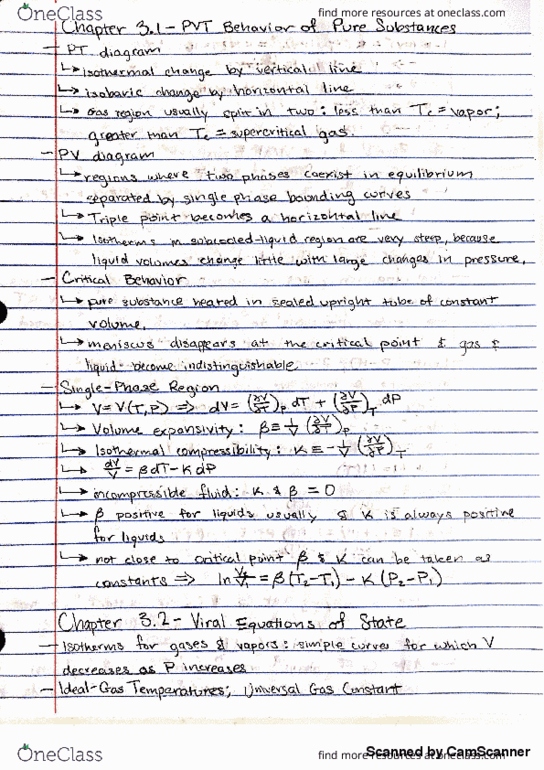 OneClass
find more resources at oneclass.com
Chapter 3.1 - PVT Behavior of Pure Substances
- PT diagram
↳ Isothermal change by vertical line
↳ isobaric change by horizontal line
↳ Gas region usually split in two: less than Tc = vapor;
greater than Tc = supercritical gas.
- PV diagram
↳ regions where two phases coexist in equilibrium
separated by single phase bounding curves
↳ Triple point becomes a horizontal line
↳ Isotherms in subcooled-liquid region are very steep, because
liquid volumes change little with large changes in pressure.
- Critical Behavior
↳ pure substance heated in sealed upright tube of constant
volume.
↳ meniscus disappears at the critical point & gas &
liquid become indistinguishable
- Single-Phase Region
↳ V = V(T,P) ⇒ dV = (∂V/∂T)_P dT + (∂V/∂P)_T dP
↳ Volume expansivity: β ≡ 1/V (∂V/∂T)_P
↳ Isothermal compressibility: κ ≡ -1/V (∂V/∂P)_T
↳ dV/V = βdT - κdP
↳ incompressible fluid: κ & β = 0
↳ β positive for liquids usually & κ is always positive
for liquids
↳ not close to critical point β & κ can be taken as
constants ⇒ ln V₂/V₁ = β(T₂-T₁) - κ(P₂-P₁)
Chapter 3.2 - Viral Equations of State
- Isotherms for gases & vapors: simple curves for which V
decreases as P increases
- Ideal-Gas Temperatures; Universal Gas Constant
OneClass
find more resources at oneclass.com
Scanned by CamScanner